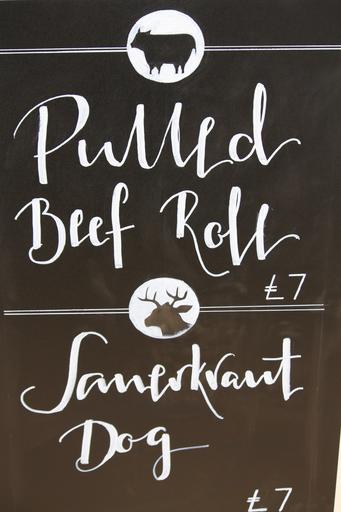 Pulled
Beef Roll
£7
Sauerkraut
Dog
£7